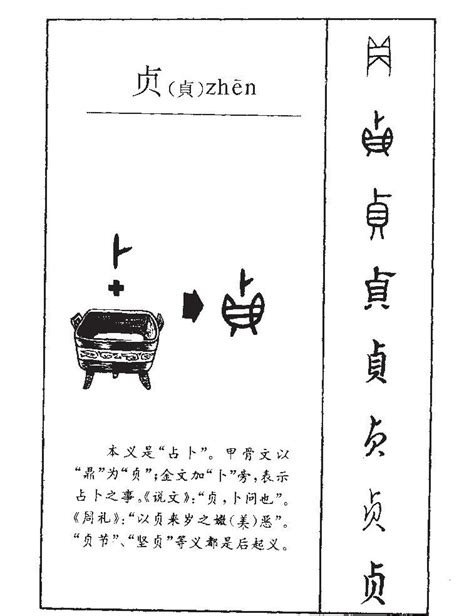 贞(貞)zhēn
卜
本义是“占卜”。甲骨文以
“鼎”为“贞”；金文加“卜”旁，表示
占卜之事。《说文》：“贞，卜问也”。
《周礼》：“以贞来岁之媺(美)恶”。
“贞节”、“坚贞”等义都是后起义。
貞
貞
貞
贞
贞
贞